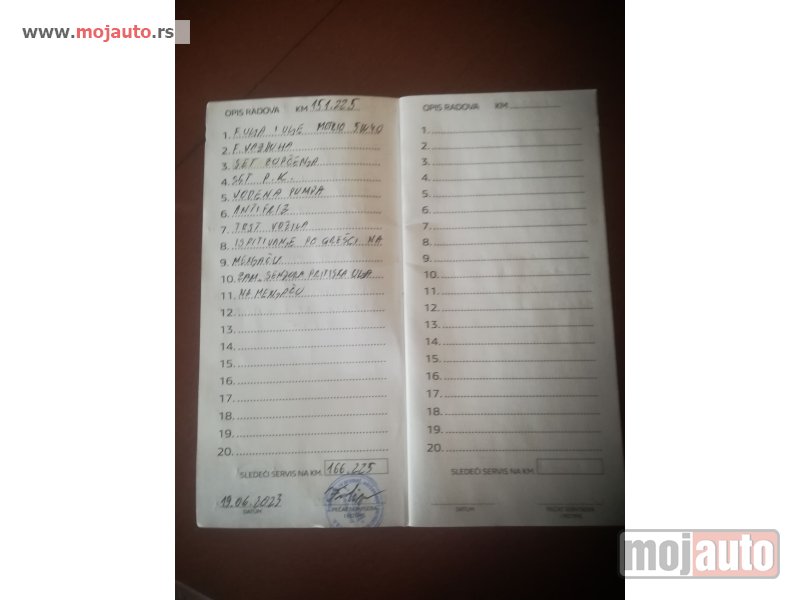 www.mojauto.rs
OPIS RADOVA KM 151.225
1. F. ULJA I ULJE MOTRIO 5W40
2. F. VAZDUHA
3. SET ZUPČENJA
4. SET P.K.
5. VODENA PUMPA
6. ANTIFRIZ
7. TEST VOZILA
8. ISPITIVANJE PO GREŠCI NA
9. MENJAČU
10. ZAM. SENZORA PRITISKA ULJA
11. NA MENJAČU
12.
13.
14.
15.
16.
17.
18.
19.
20.
SLEDEĆI SERVIS NA KM 166.225
19.06.2023
DATUM
PEČAT SERVISERA
I POTPIS
OPIS RADOVA KM
1.
2.
3.
4.
5.
6.
7.
8.
9.
10.
11.
12.
13.
14.
15.
16.
17.
18.
19.
20.
SLEDEĆI SERVIS NA KM
DATUM
PEČAT SERVISERA
I POTPIS
mojauto